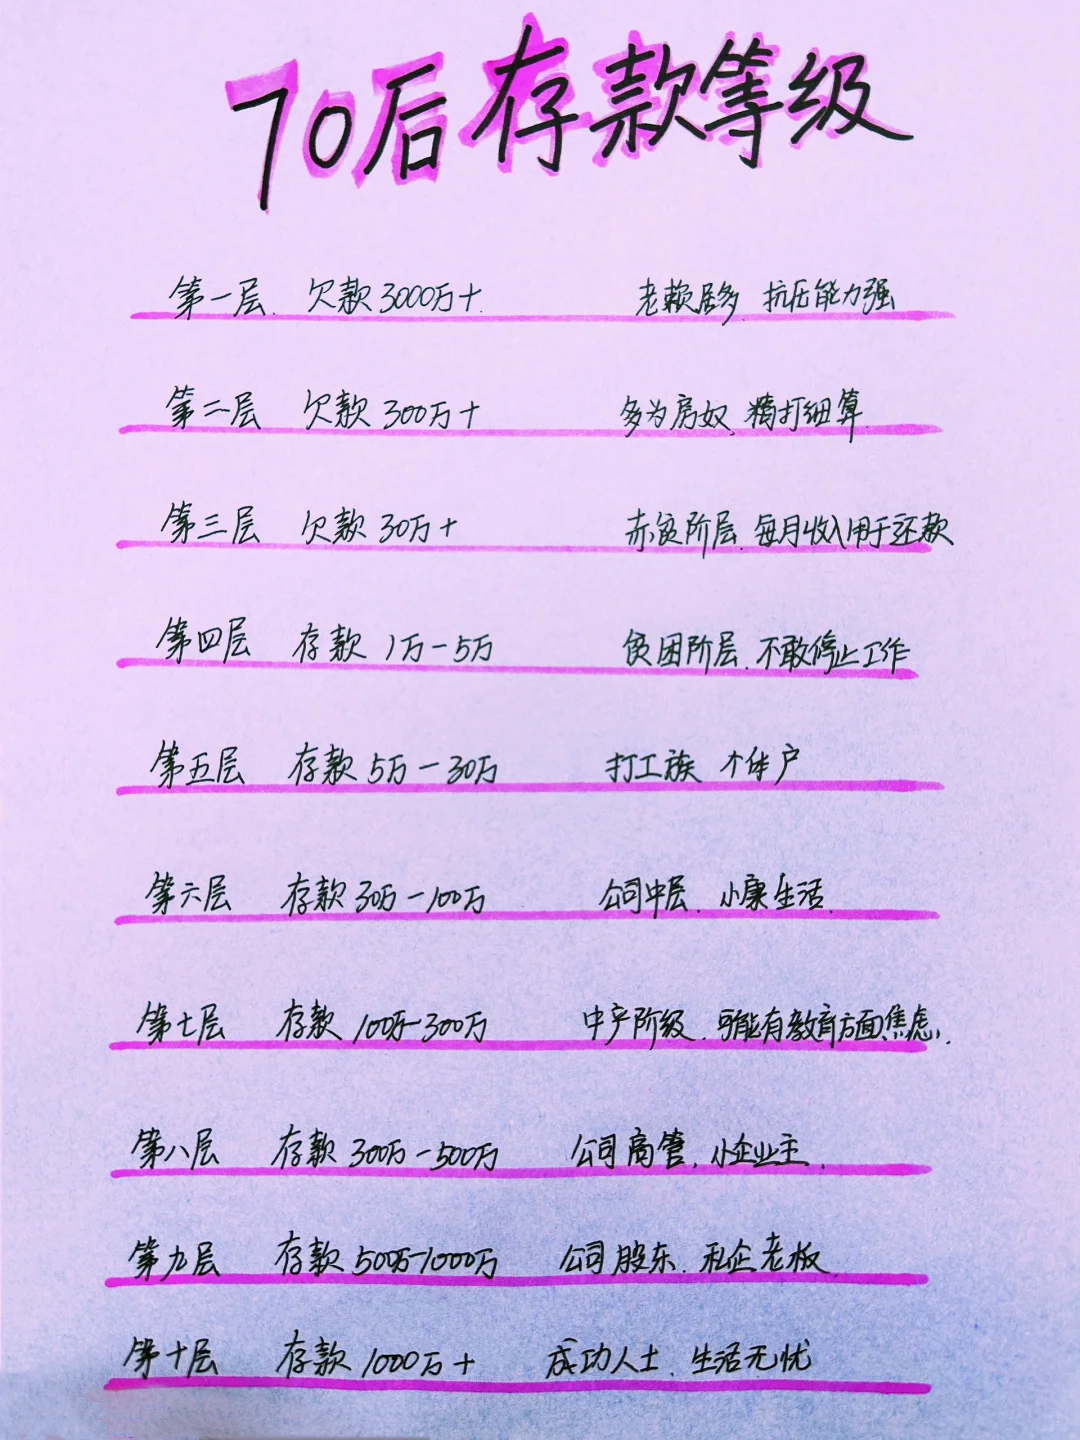 70后存款等级
第一层 欠款3000万+ 老赖居多 抗压能力强
第二层 欠款300万+ 多为房奴, 精打细算
第三层 欠款30万+ 赤贫阶层, 每月收入用于还款
第四层 存款1万-5万 贫困阶层, 不敢停止工作
第五层 存款5万-30万 打工族 个体户
第六层 存款30万-100万 公司中层, 小康生活
第七层 存款100万-300万 中产阶级, 可能有教育方面焦虑,
第八层 存款300万-500万 公司高管, 小企业主,
第九层 存款500万-1000万 公司股东, 私企老板
第十层 存款1000万+ 成功人士, 生活无忧